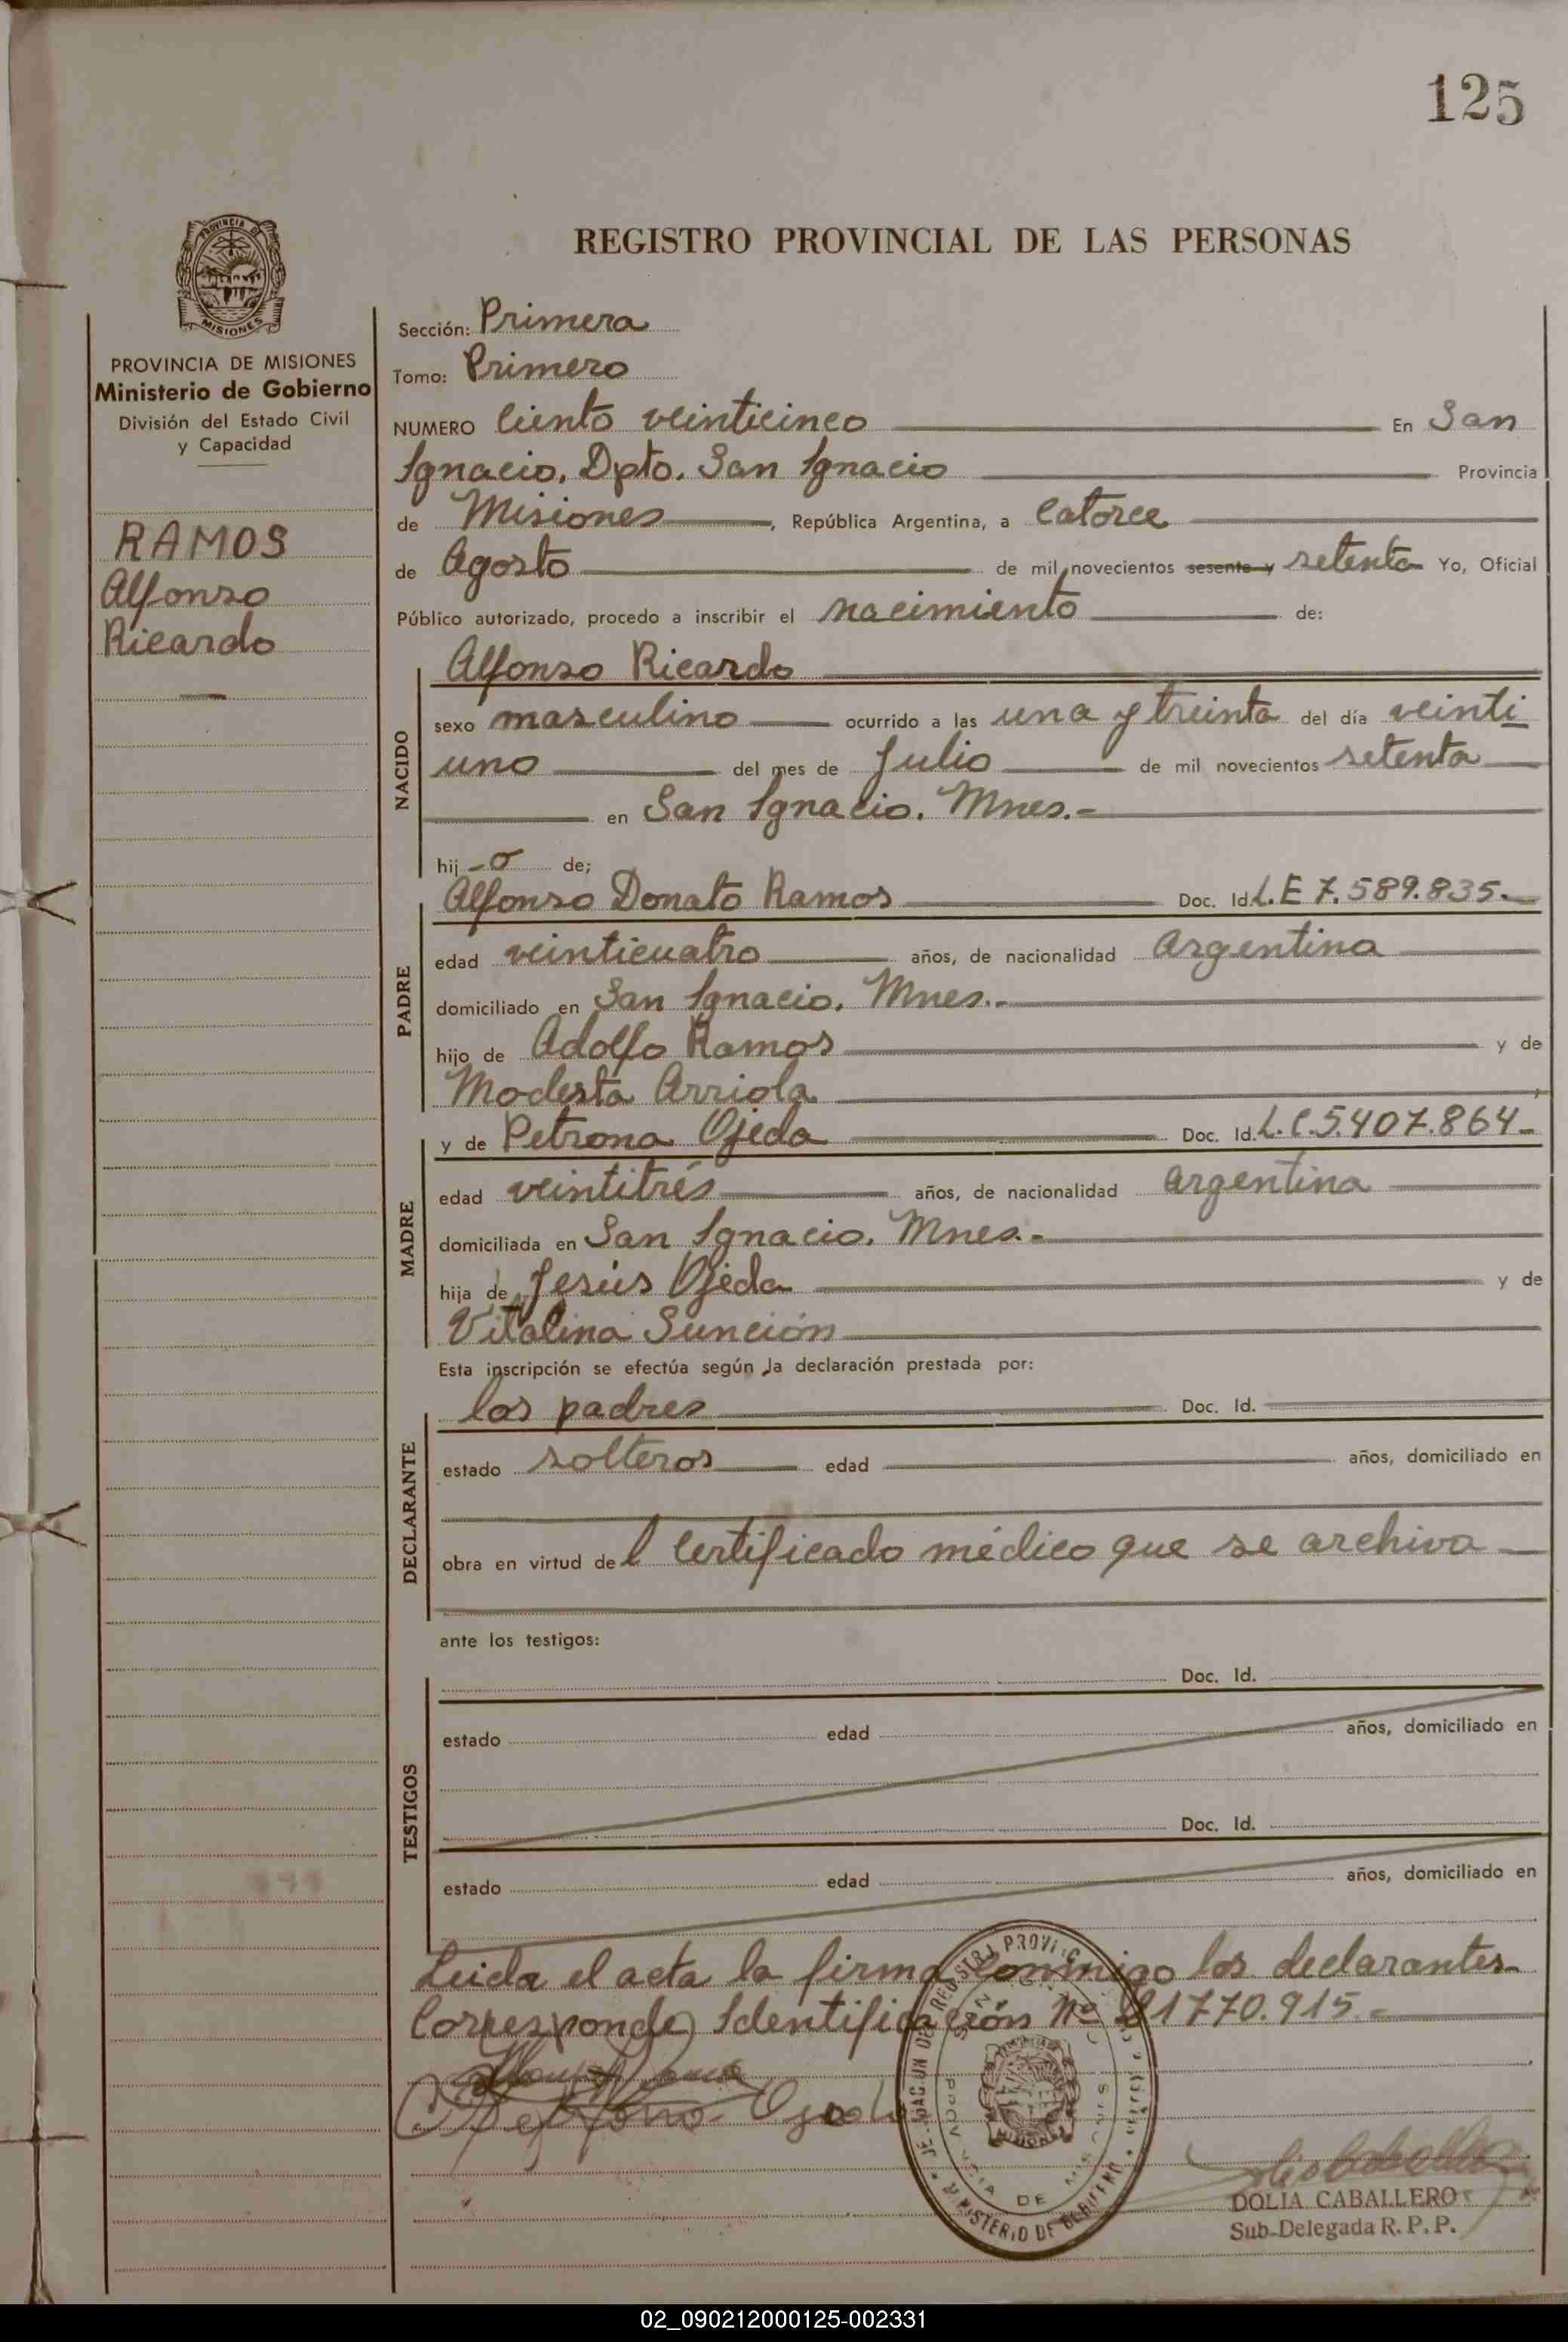 125
REGISTRO PROVINCIAL DE LAS PERSONAS
PROVINCIA DE
MISIONES
PROVINCIA DE MISIONES
Ministerio de Gobierno
División del Estado Civil
y Capacidad
RAMOS
Alfonso
Ricardo
Sección: Primera
Tomo: Primero
NUMERO Ciento veinticinco En San
Ignacio, Dpto. San Ignacio Provincia
de Misiones, República Argentina, a Catorce
de Agosto de mil novecientos sesenta y setenta Yo, Oficial
Público autorizado, procedo a inscribir el nacimiento de:
NACIDO
Alfonso Ricardo
sexo masculino ocurrido a las una y treinta del día veinti
uno del mes de Julio de mil novecientos setenta
en San Ignacio. Mnes.-
hij-o de;
PADRE
Alfonso Donato Ramos Doc. Id. L.E 7.589.835.-
edad veinticuatro años, de nacionalidad Argentina
domiciliado en San Ignacio. Mnes.-
hijo de Adolfo Ramos y de
Modesta Arriola
MADRE
y de Petrona Ojeda Doc. Id. L.C.5.407.864-
edad veintitrés años, de nacionalidad argentina
domiciliada en San Ignacio. Mnes.-
hija de Jesús Ojeda y de
Vitalina Sunción
Esta inscripción se efectúa según la declaración prestada por:
DECLARANTE
los padres Doc. Id.
estado solteros edad años, domiciliado en
obra en virtud del Certificado médico que se archiva
ante los testigos:
TESTIGOS
Doc. Id.
estado edad años, domiciliado en
Doc. Id.
estado edad años, domiciliado en
Leida el acta la firman conmigo los declarantes.
Corresponde Identificación Nº 21770.915.-
Petrona Ojeda
MINISTERIO DE GOBIERNO
PROVINCIA DE MISIONES
DOLIA CABALLERO
Sub-Delegada R. P. P.
02_090212000125-002331